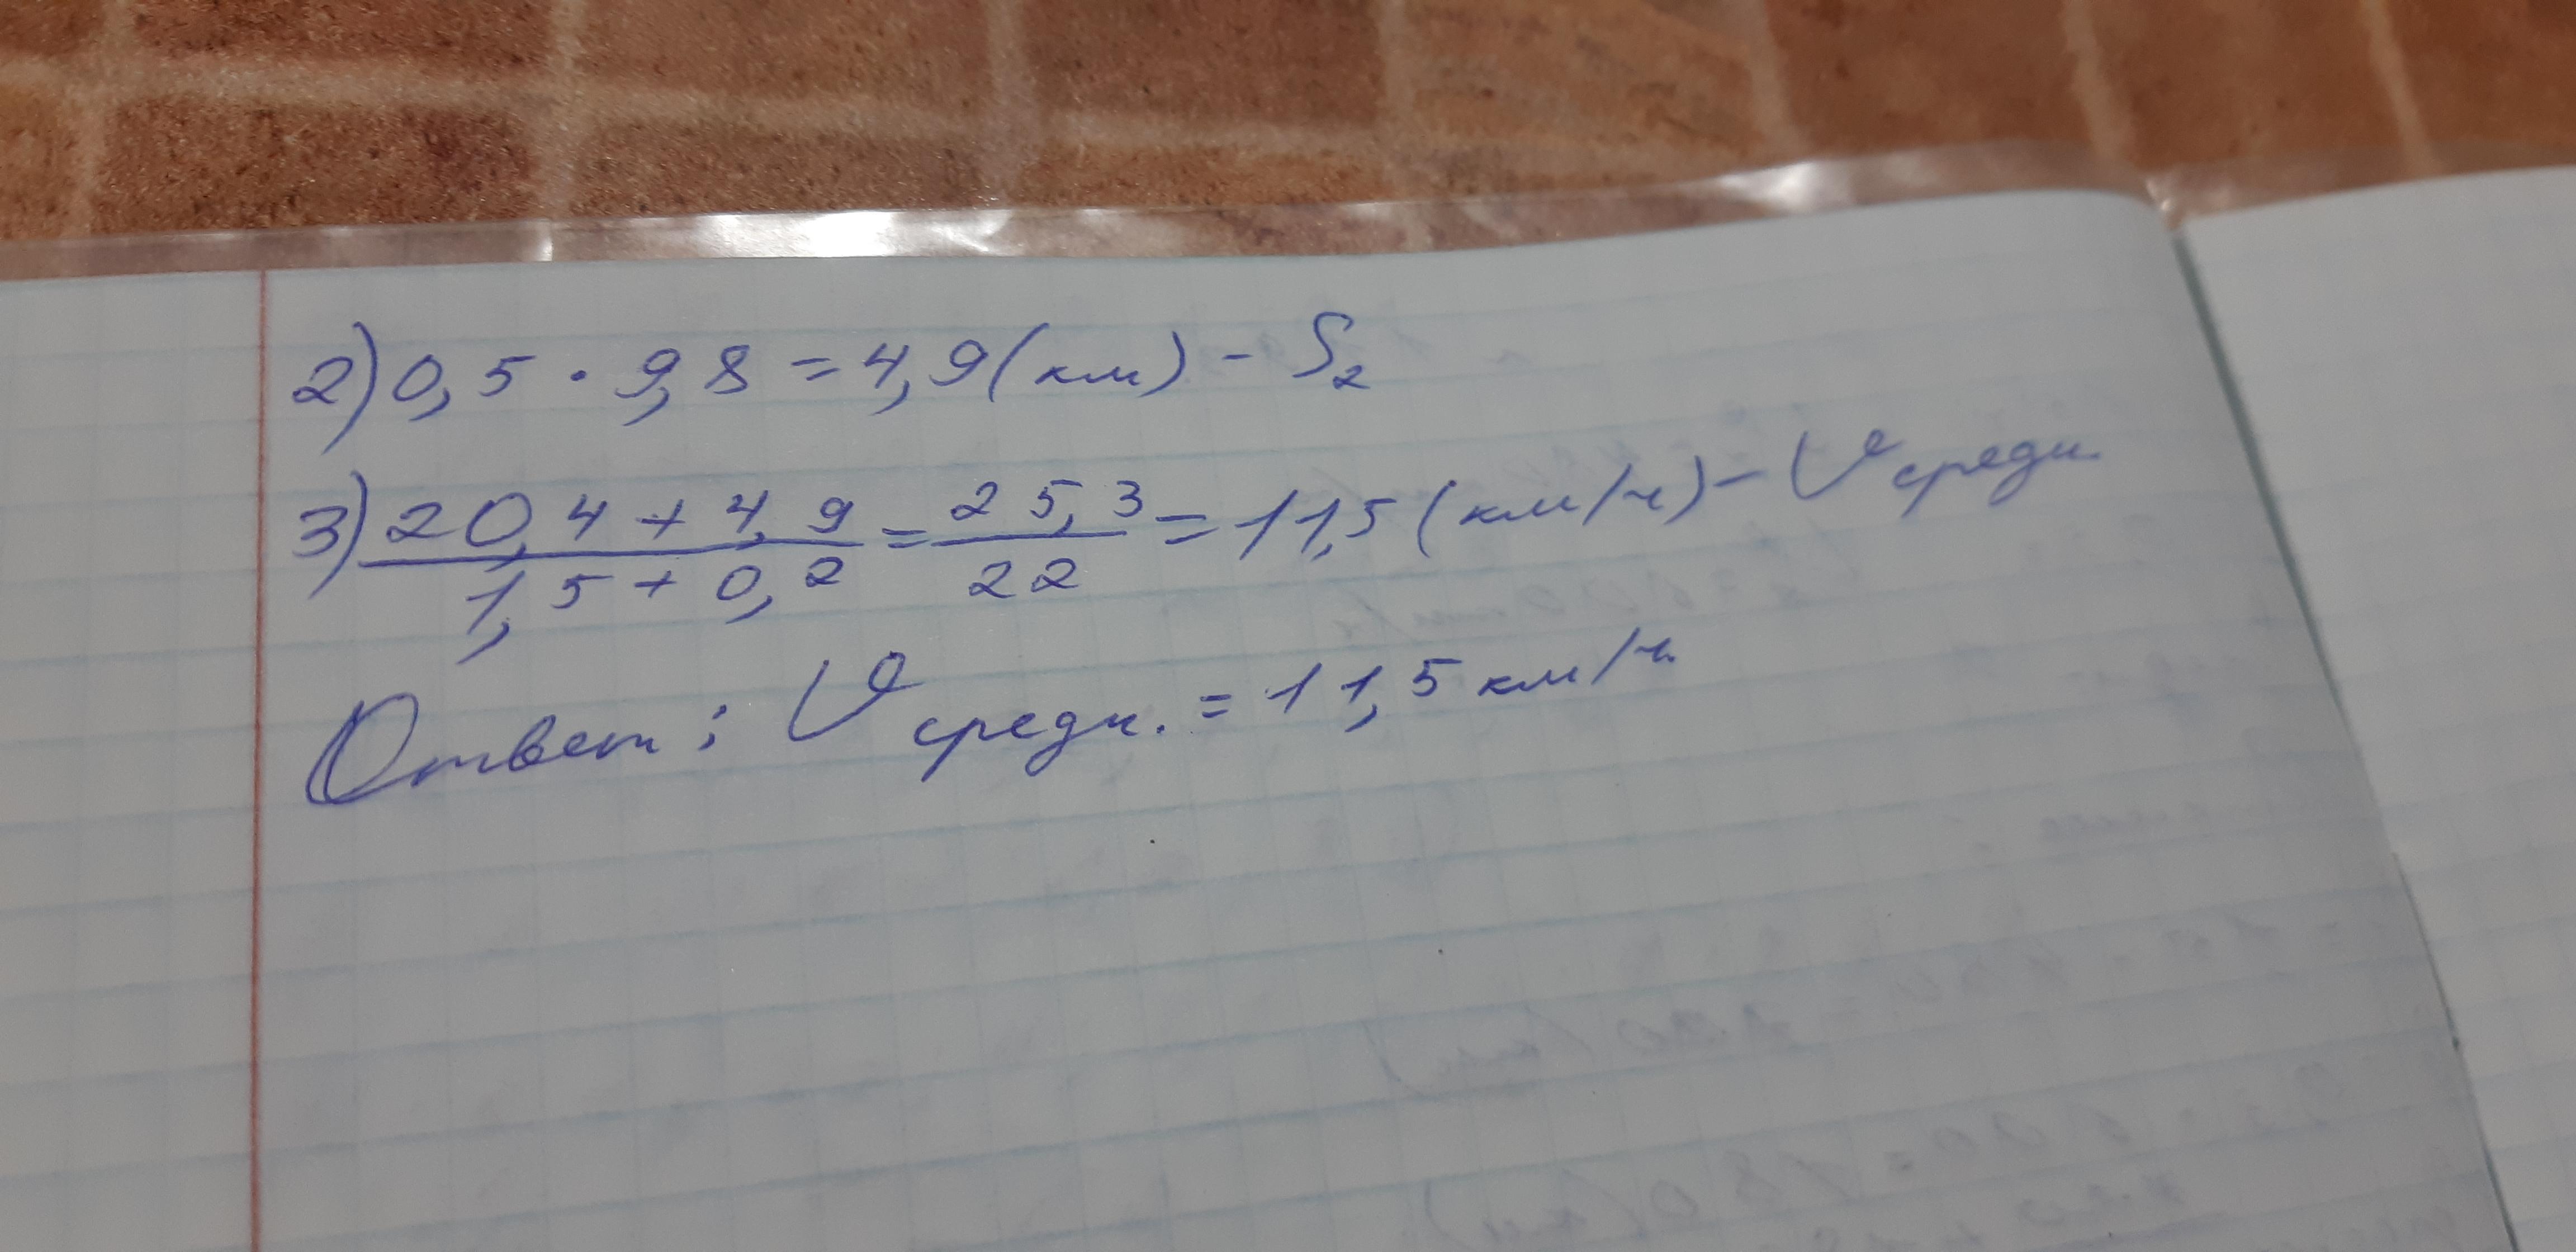 2) 0,5 · 9,8 = 4,9 (км) - S₂
3) (20,4 + 4,9)/(1,5 + 0,2) = 25,3/22 = 11,5 (км/ч) - V средн.
Ответ: V средн. = 11,5 км/ч.